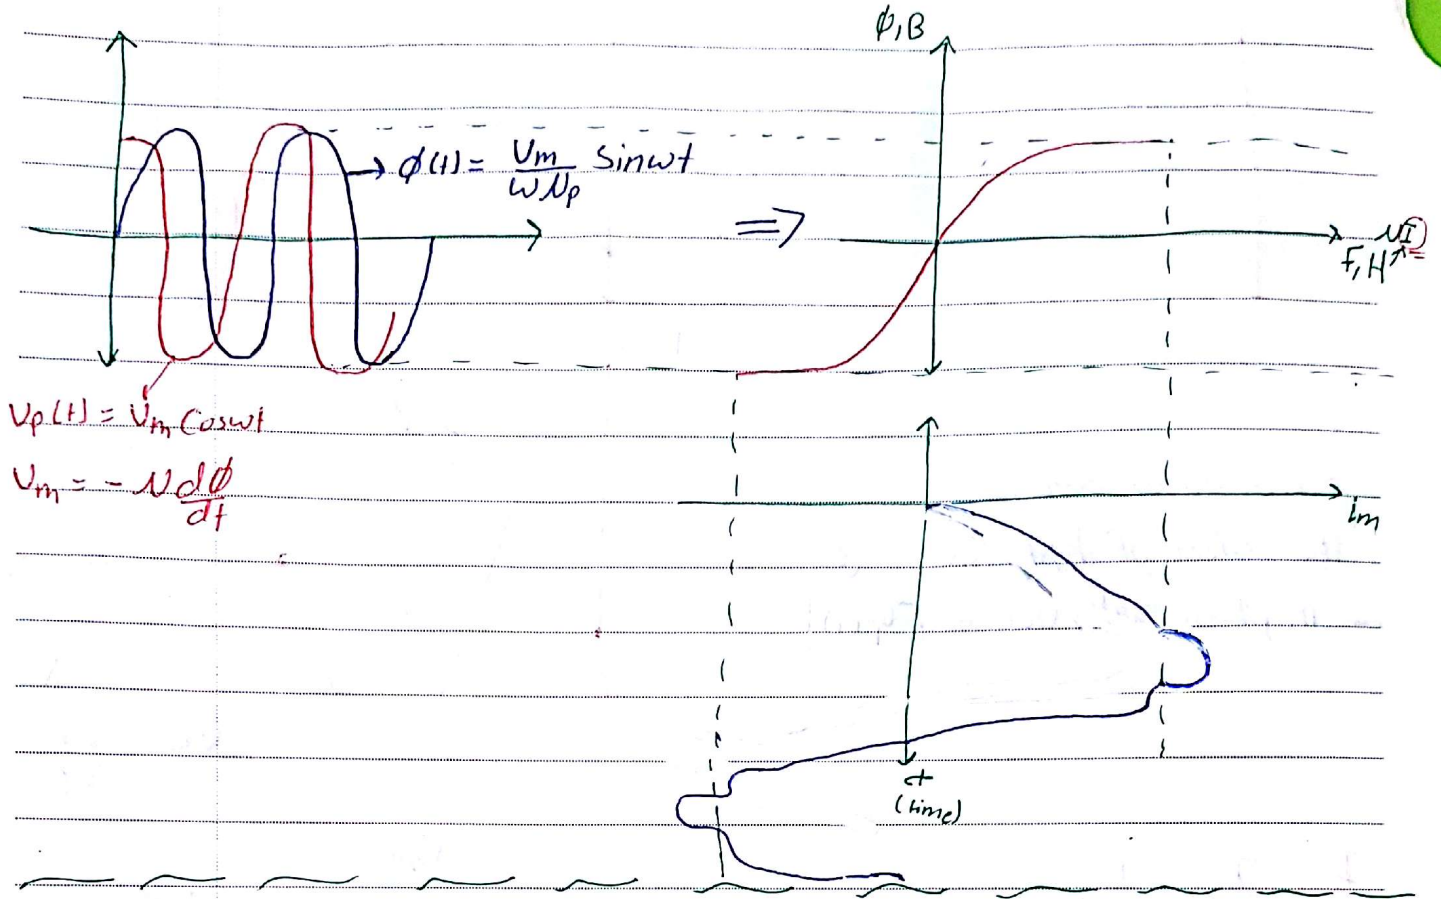 ϕ,B
ϕ(t) = Vm/ωNp Sinωt
⇒
NI
F,H
Vp(t) = Vm Cosωt
Vm = - N dϕ/dt
im
t
(time)